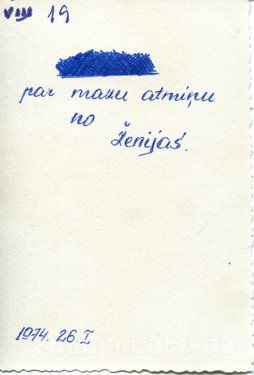 VIII 19
par mazu atmiņu
no
Ženijas.
1974. 26. I